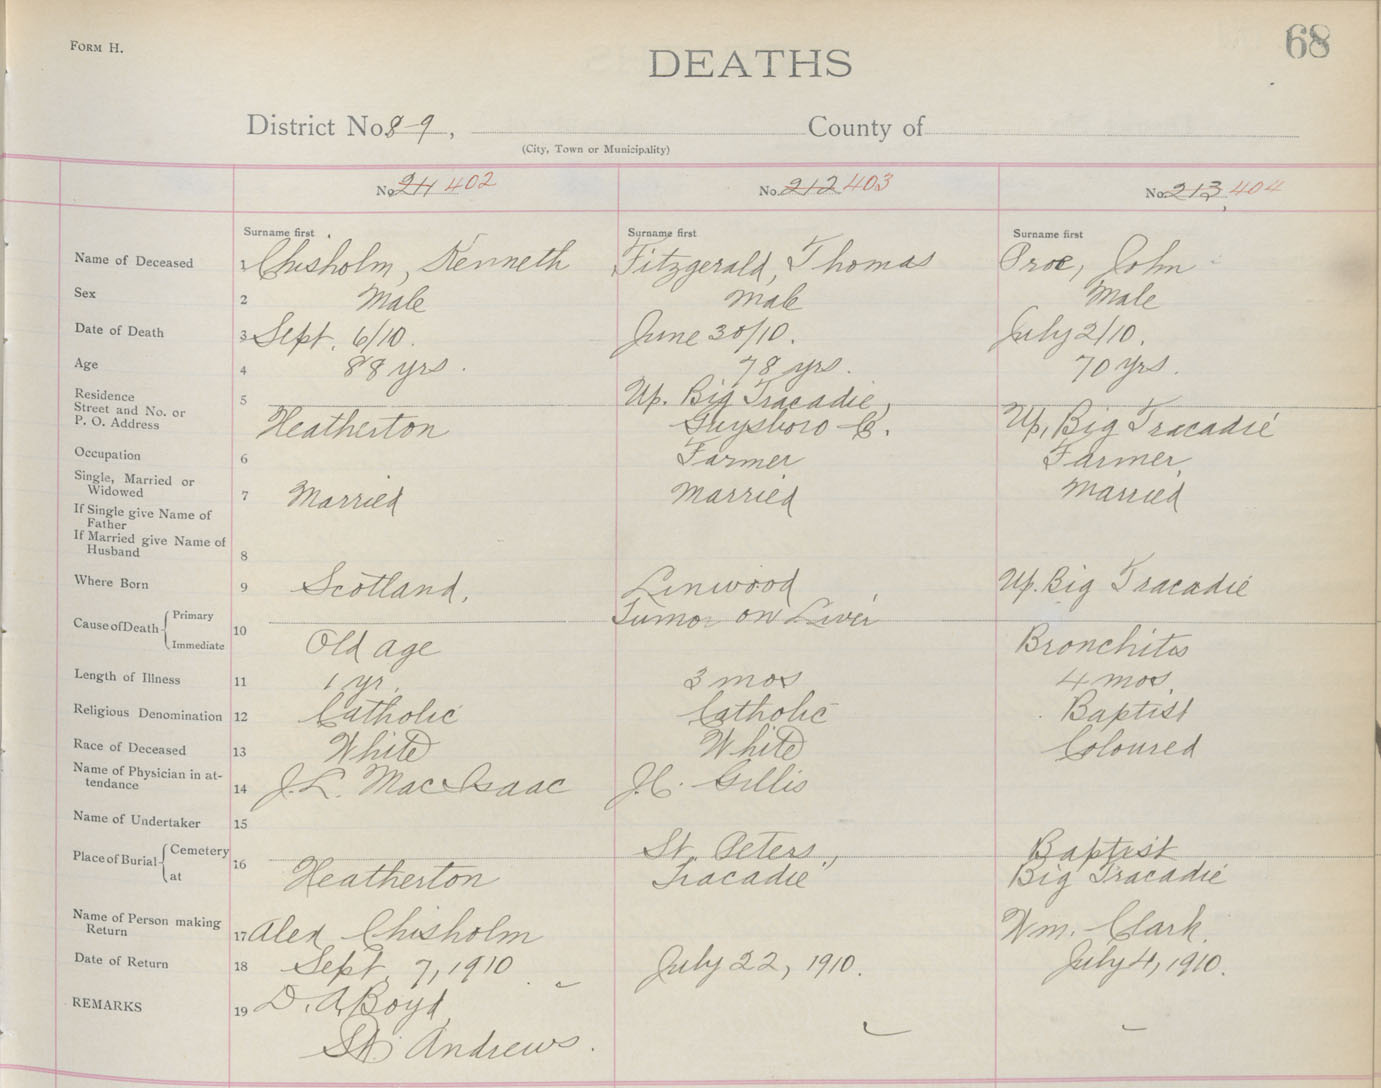 FORM H.
68
DEATHS
District No. 8-9, County of
(City, Town or Municipality)
No. 211 402 No. 212 403 No. 213, 404
Surname first Surname first Surname first
Name of Deceased 1 Chisholm, Kenneth Fitzgerald, Thomas Proe, John
Sex 2 Male Male Male
Date of Death 3 Sept. 6/10. June 30/10. July 2/10.
Age 4 88 yrs. 78 yrs. 70 yrs.
Residence 5 Up. Big Tracadie,
Street and No. or
P. O. Address Heatherton Guysboro Co. Up, Big Tracadie
Occupation 6 Farmer Farmer,
Single, Married or
Widowed 7 Married Married Married
If Single give Name of
Father
If Married give Name of
Husband 8
Where Born 9 Scotland, Linwood Up. Big Tracadie
Cause of Death Primary Tumor on Liver
10
Immediate Old age Bronchitis
Length of Illness 11 1 yr. 3 mos 4 mos.
Religious Denomination 12 Catholic Catholic Baptist
Race of Deceased 13 White White Coloured
Name of Physician in at-
tendance 14 J. L. MacIsaac J. C. Gillis
Name of Undertaker 15
Place of Burial Cemetery 16 St. Peters, Baptist
at Heatherton Tracadie Big Tracadie
Name of Person making
Return 17 Alex Chisholm Wm. Clark.
Date of Return 18 Sept 7, 1910 July 22, 1910. July 4, 1910.
REMARKS 19 D. A. Boyd
St. Andrews.